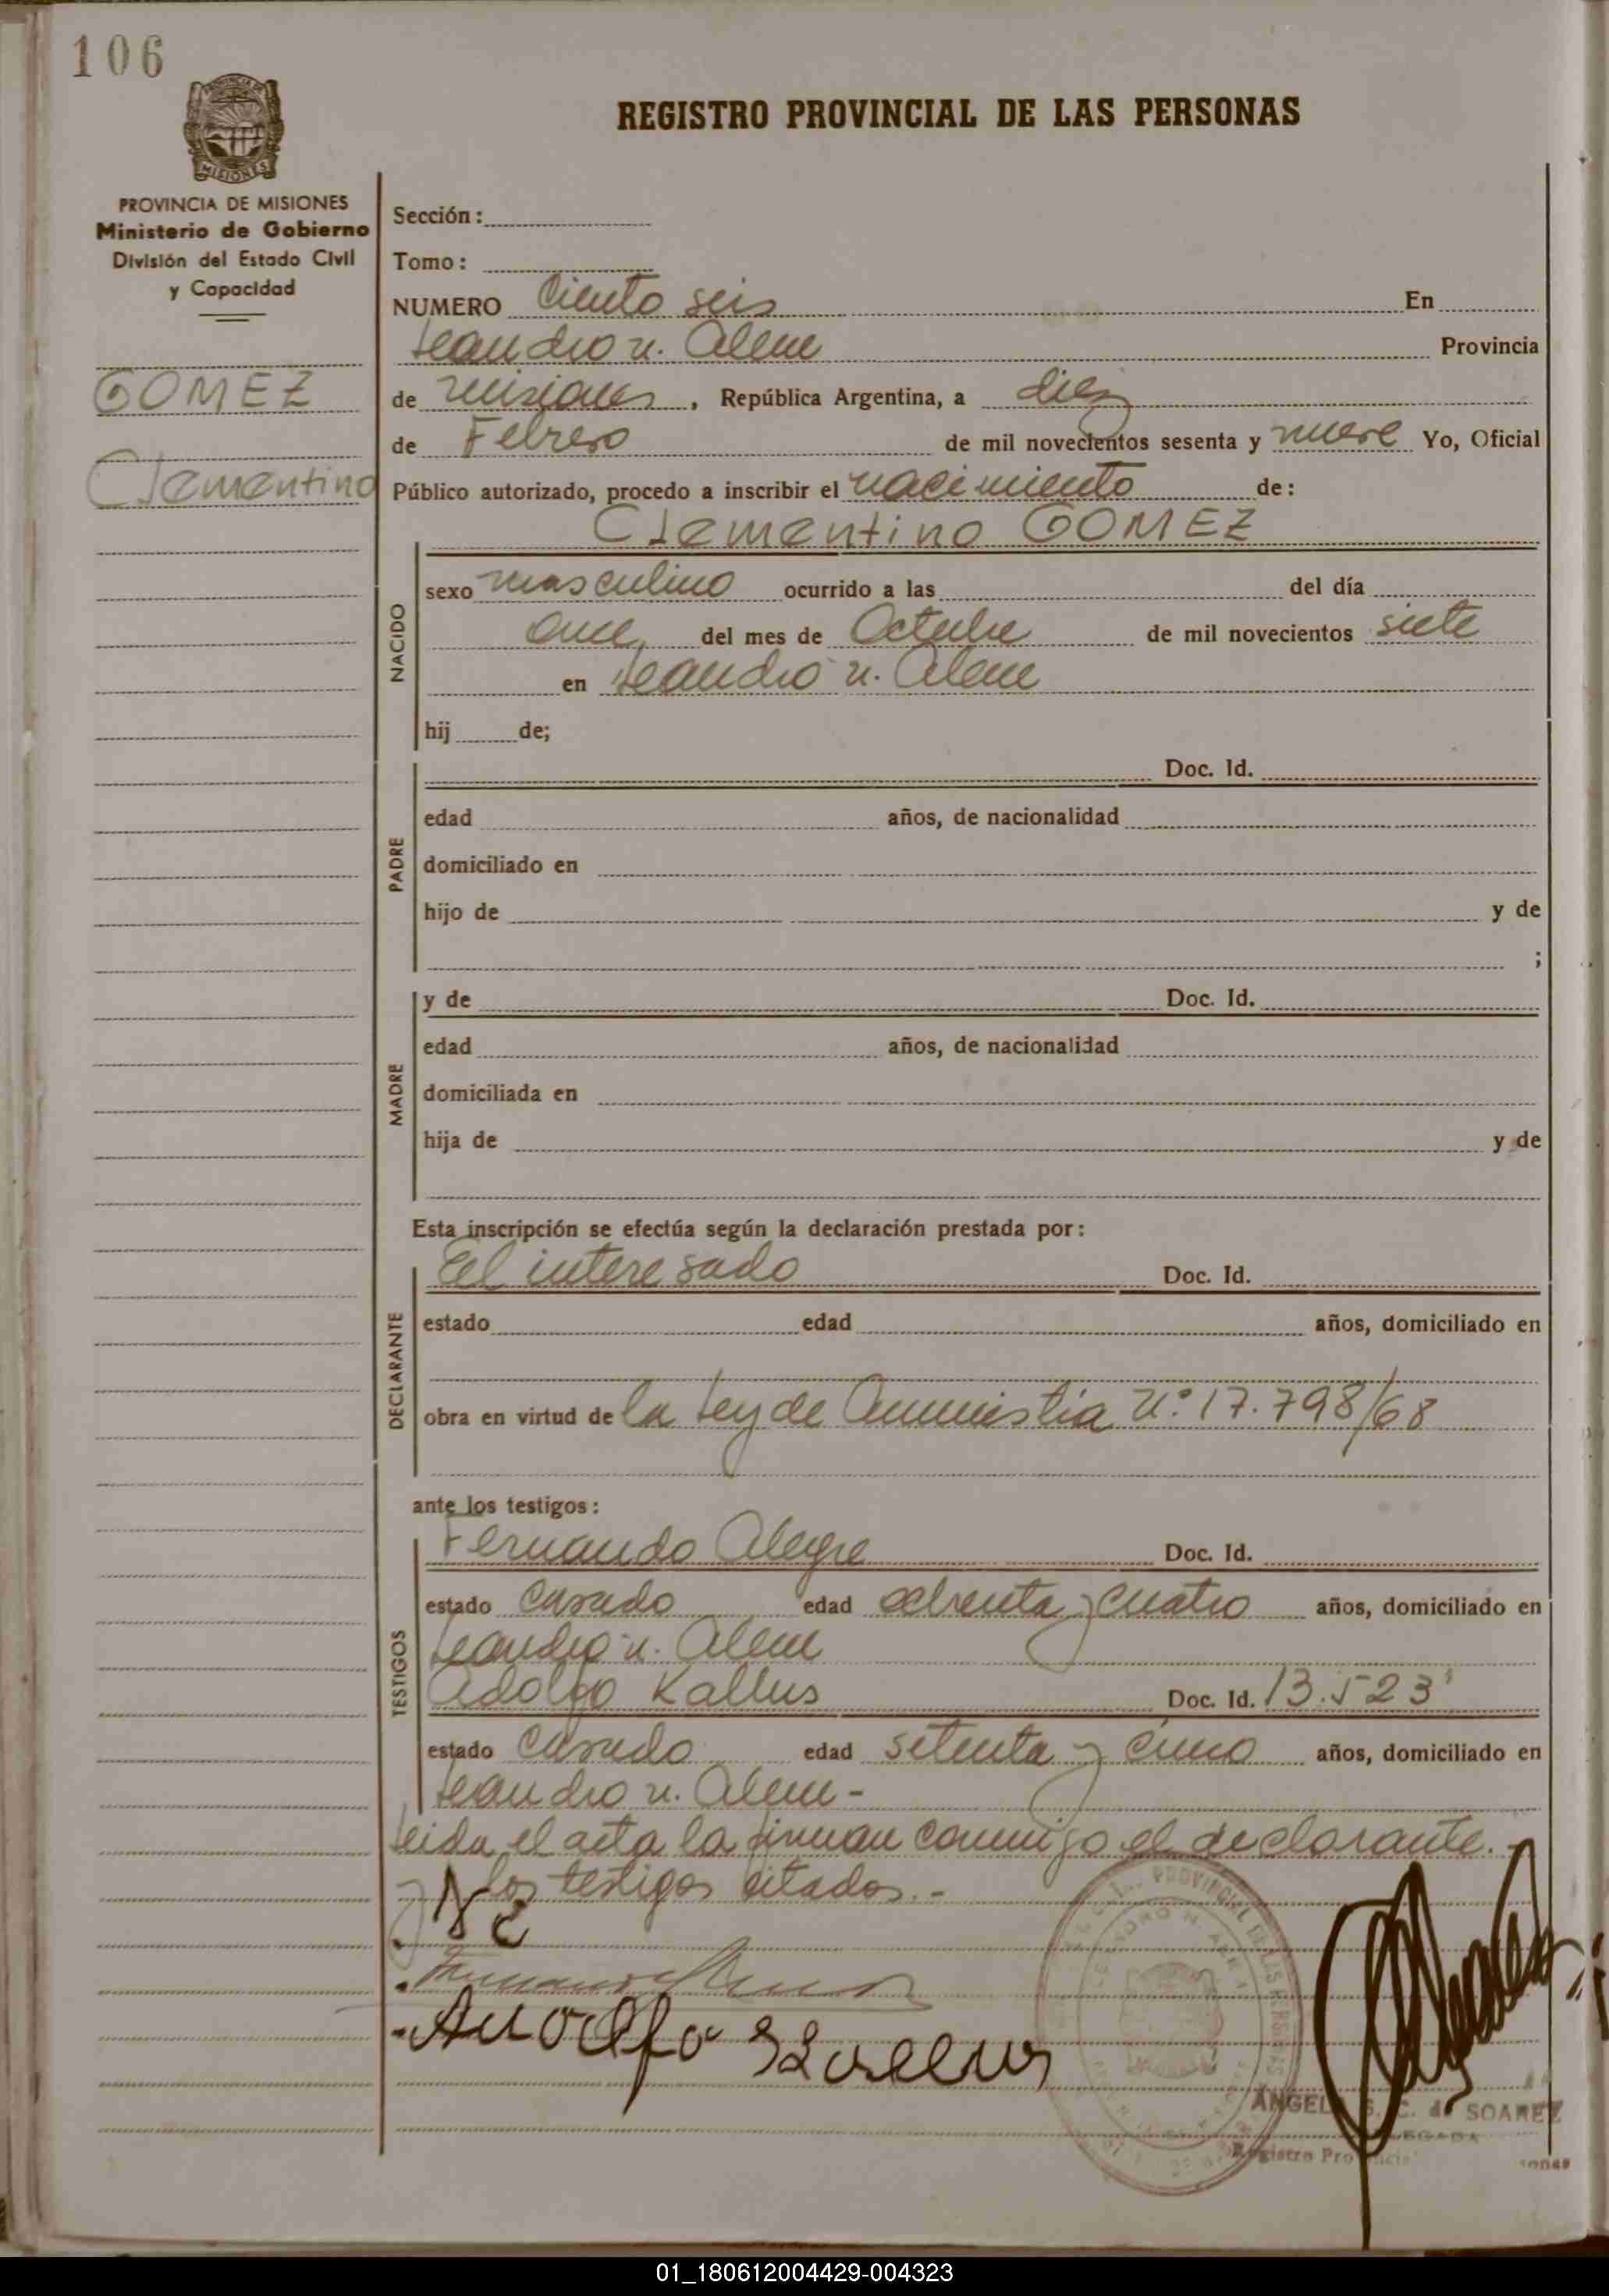 106
REGISTRO PROVINCIAL DE LAS PERSONAS
MISIONES
PROVINCIA DE MISIONES
Ministerio de Gobierno
División del Estado Civil
y Capacidad
GOMEZ
Clementino
Sección:
Tomo:
NUMERO Ciento seis En
Leandro n. Alem Provincia
de misiones, República Argentina, a diez
de Febrero de mil novecientos sesenta y nueve Yo, Oficial
Público autorizado, procedo a inscribir el nacimiento de:
Clementino GOMEZ
NACIDO
sexo masculino ocurrido a las del día
once del mes de Octubre de mil novecientos siete
en Leandro n. Alem
hij de;
PADRE
Doc. Id.
edad años, de nacionalidad
domiciliado en
hijo de y de
;
MADRE
y de Doc. Id.
edad años, de nacionalidad
domiciliada en
hija de y de
Esta inscripción se efectúa según la declaración prestada por:
DECLARANTE
El interesado Doc. Id.
estado edad años, domiciliado en
obra en virtud de la Ley de Amnistia N° 17.798/68
ante los testigos:
TESTIGOS
Fernando Alegre Doc. Id.
estado casado edad ochenta y cuatro años, domiciliado en
Leandro n. Alem
Adolfo Kallus Doc. Id. 13.523
estado casado edad setenta y cinco años, domiciliado en
Leandro n. Alem -
Leida el acta la firman conmigo el declarante.-
y los testigos citados.-
ANGEL S. C. de SOAREZ
Registro Provincial
01_180612004429-004323